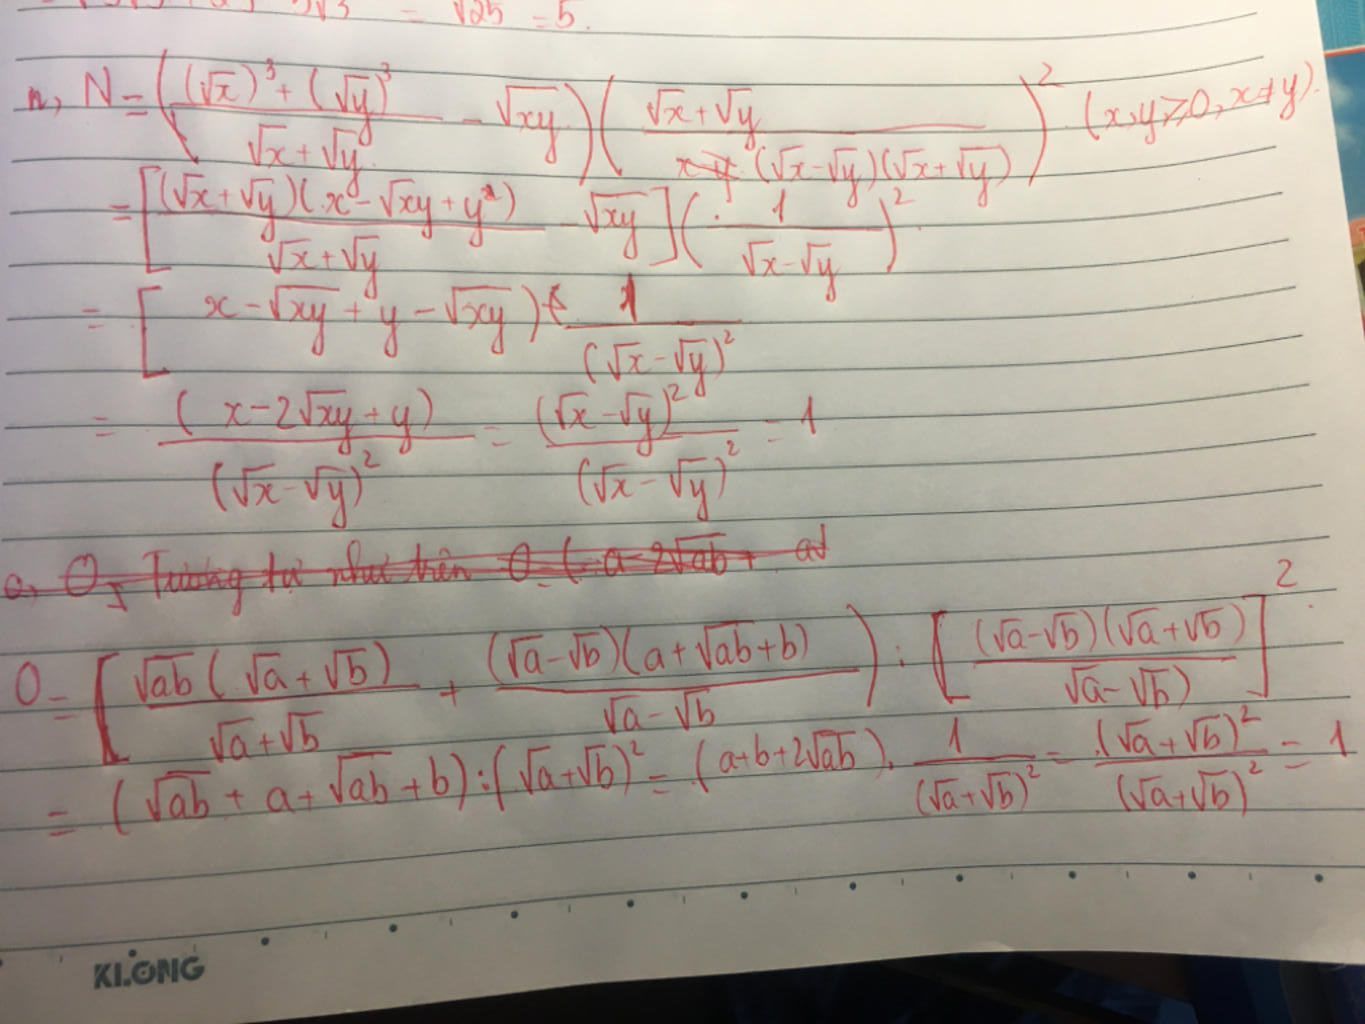 √3 = √25 = 5.
n, N = ( ((√x)³ + (√y)³)/(√x + √y) - √xy ) ( (√x + √y)/((√x - √y)(√x + √y)) )² (x,y ≥ 0, x ≠ y).
= [ ((√x + √y)(x - √xy + y))/(√x + √y) - √xy ] ( 1/(√x - √y) )²
= [ x - √xy + y - √xy ) 1/(√x - √y)²
= (x - 2√xy + y)/(√x - √y)² = (√x - √y)²/(√x - √y)² = 1
a, O, Tương tự như trên O = ( a - 2√ab +
O = [ (√ab(√a + √b))/(√a + √b) + ((√a - √b)(a + √ab + b))/(√a - √b) ) : [ ((√a - √b)(√a + √b))/(√a - √b) ]²
= (√ab + a + √ab + b) : (√a + √b)² = (a + b + 2√ab) . 1/(√a + √b)² = (√a + √b)²/(√a + √b)² = 1
KLONG